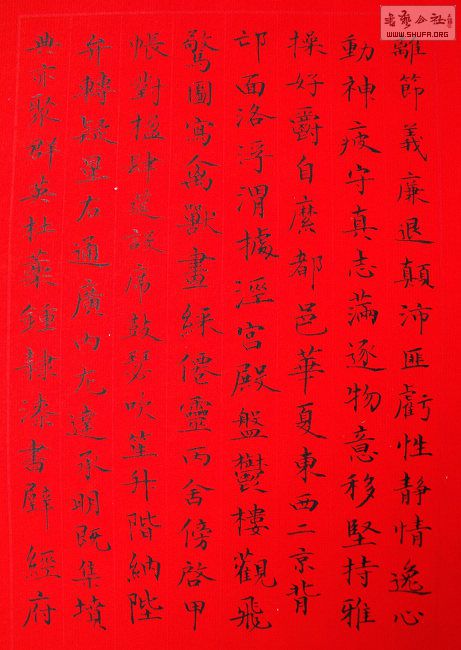 離節義廉退顛沛匪虧性靜情逸心
動神疲守真志滿逐物意移堅持雅
操好爵自縻都邑華夏東西二京背
邙面洛浮渭據涇宮殿盤鬱樓觀飛
驚圖寫禽獸畫綵僊靈丙舍傍啓甲
帳對楹肆筵設席鼓瑟吹笙升階納陛
弁轉疑星右通廣內左達承明既集墳
典亦聚群英杜藁鍾隸漆書壁經府
書藝公社
WWW.SHUFA.ORG